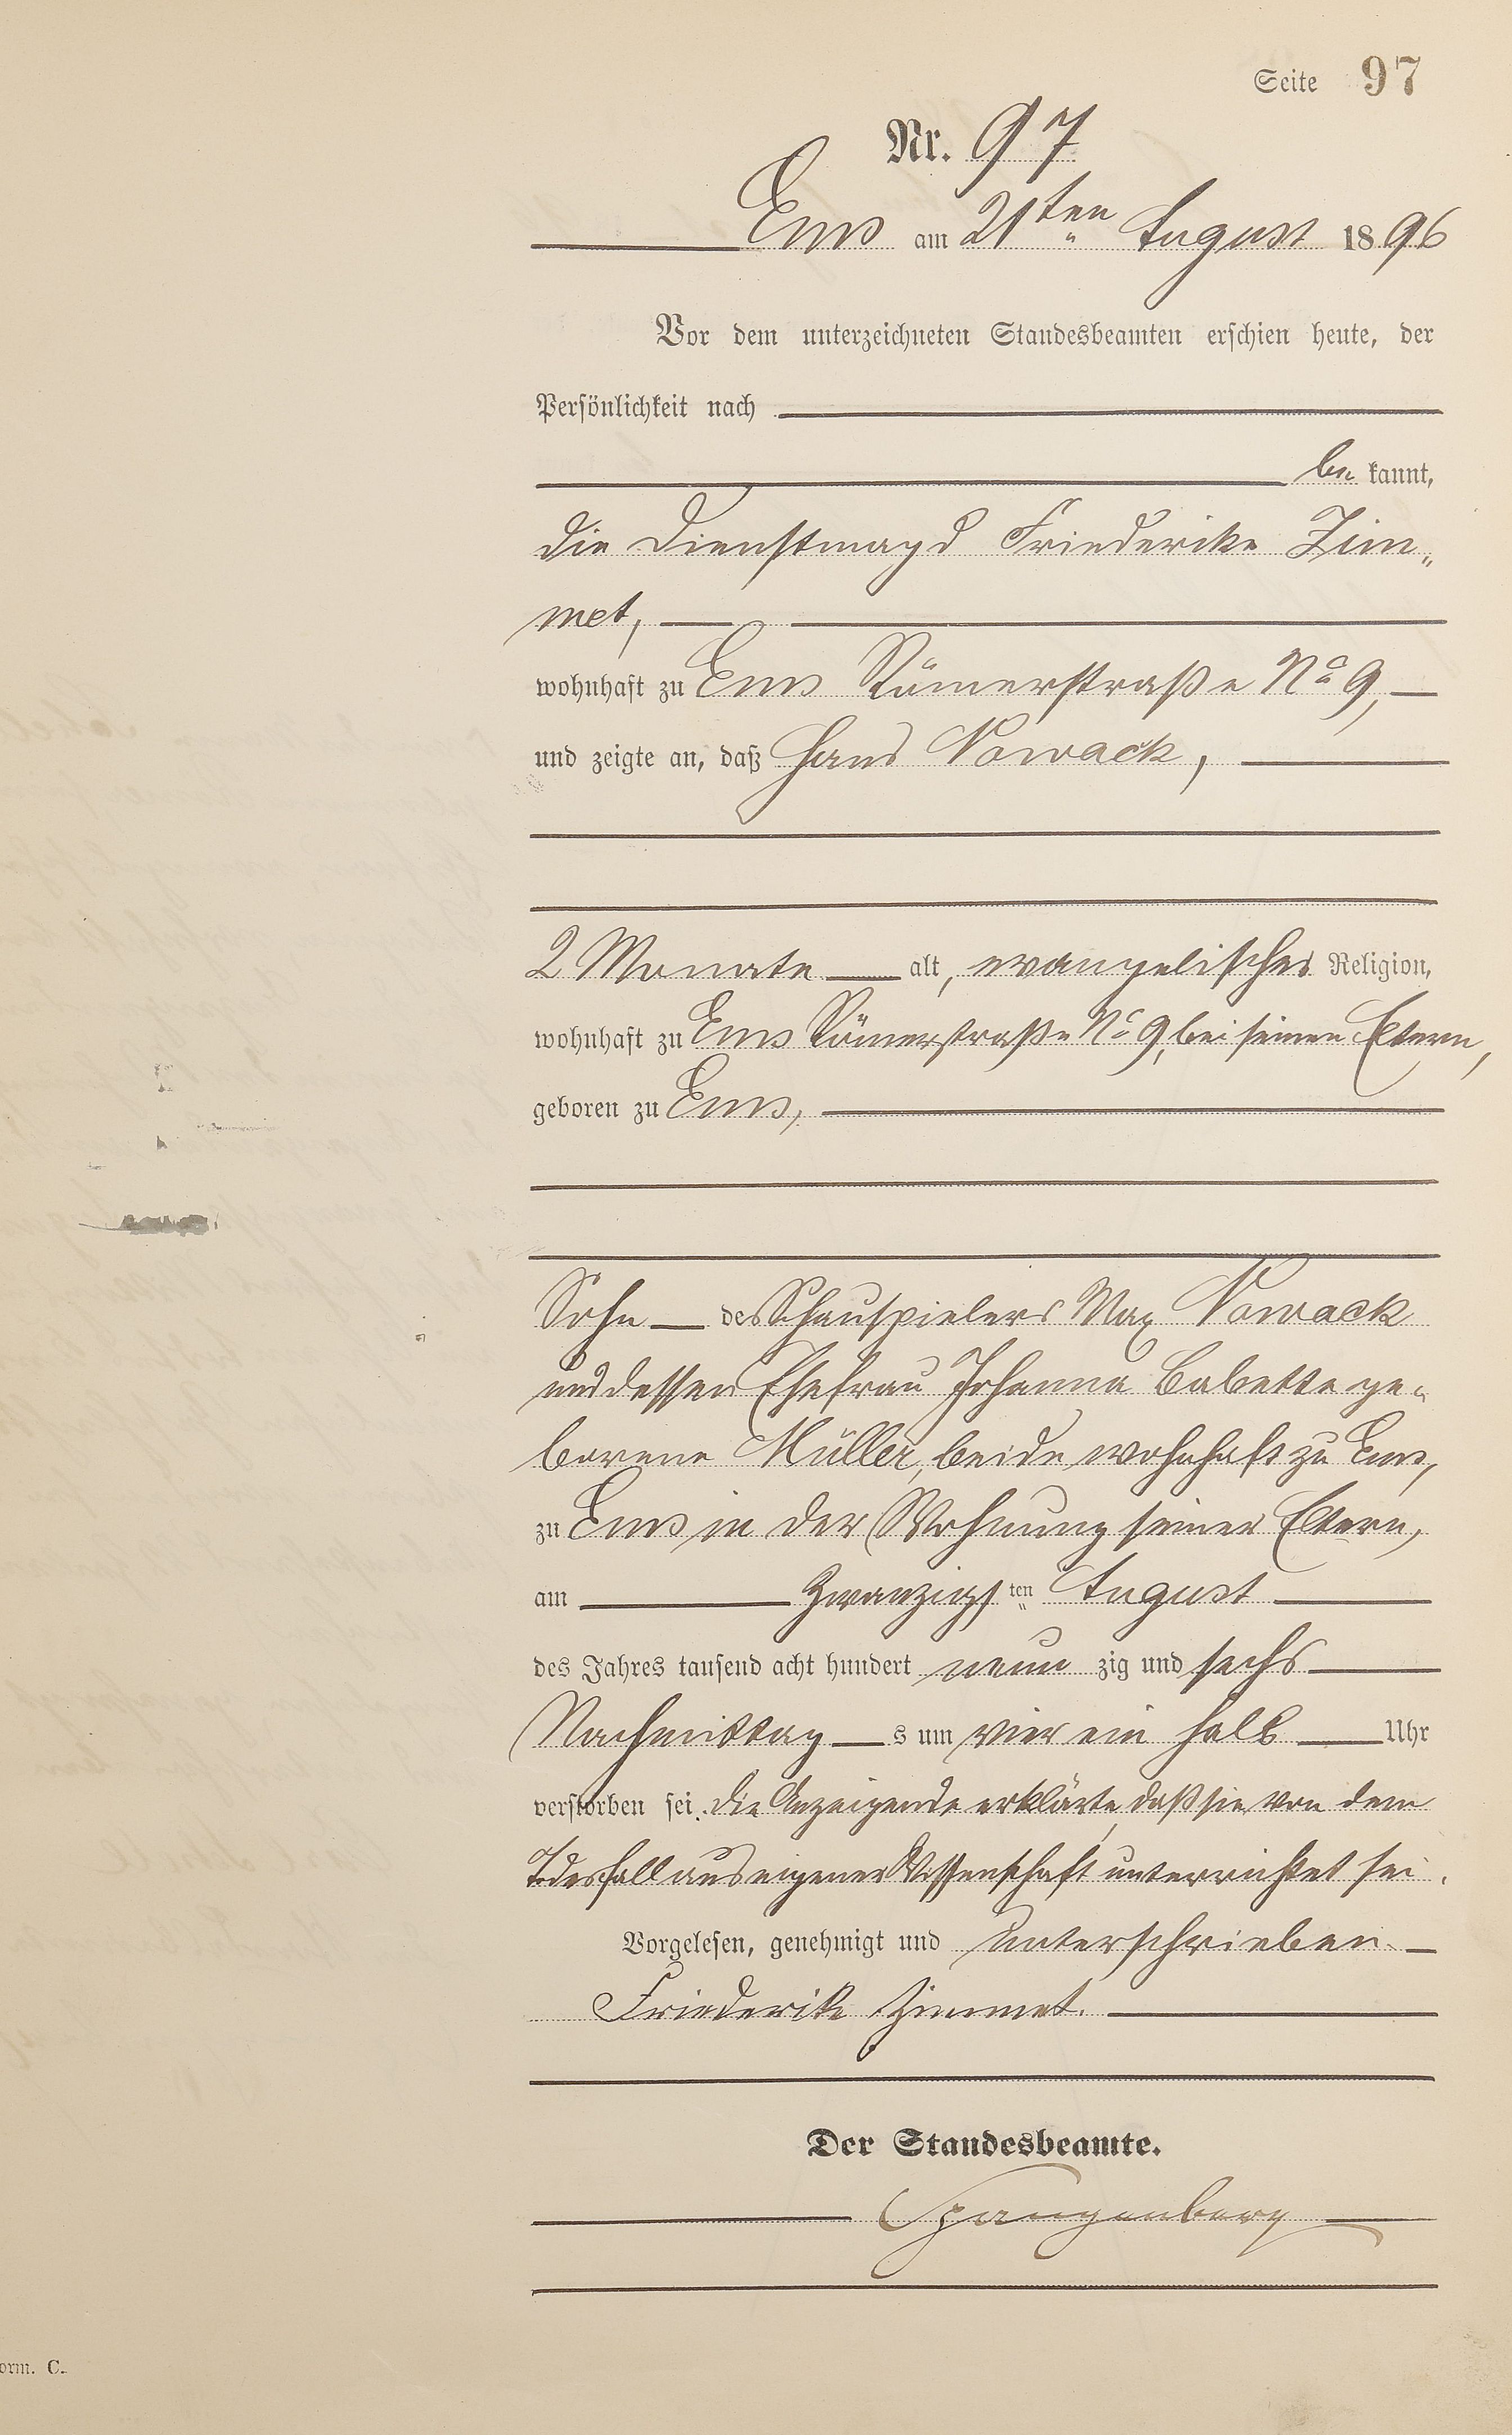 Seite 97
Nr. 97
Ems am 21ten August 1896
Vor dem unterzeichneten Standesbeamten erschien heute, der
Persönlichkeit nach
bekannt,
die Dienstmagd Friederike Zim„
met,
wohnhaft zu Ems Römerstraße No 9,
und zeigte an, daß Hans Nowack,
2 Monate alt, evangelischer Religion,
wohnhaft zu Ems Römerstraße No 9, bei seinen Eltern,
geboren zu Ems,
Sohn des Schauspielers Max Nowack
und dessen Ehefrau Johanna Babette ge„
borene Müller, beide wohnhaft zu Ems,
zu Ems in der Wohnung seiner Eltern,
am zwanzigsten August
des Jahres tausend acht hundert neunzig und sechs
Nachmittags um vier ein halb Uhr
verstorben sei. Die Anzeigende erklärte, daß sie von dem
Todesfall aus eigener Wissenschaft unterrichtet sei.
Vorgelesen, genehmigt und unterschrieben.
Friederike Zimmet.
Der Standesbeamte.
Spangenberg
orm. C.